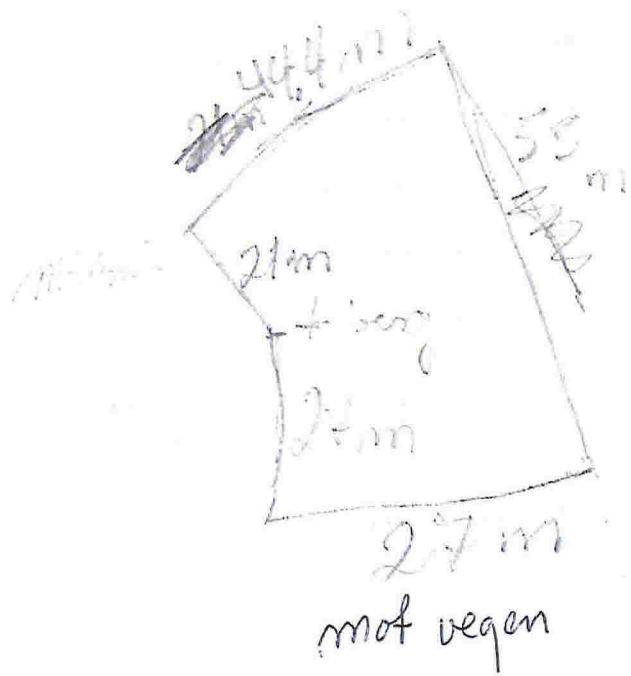 44,4 m
55
m
21 m
+ berg
27 m
27 m
mot vegen